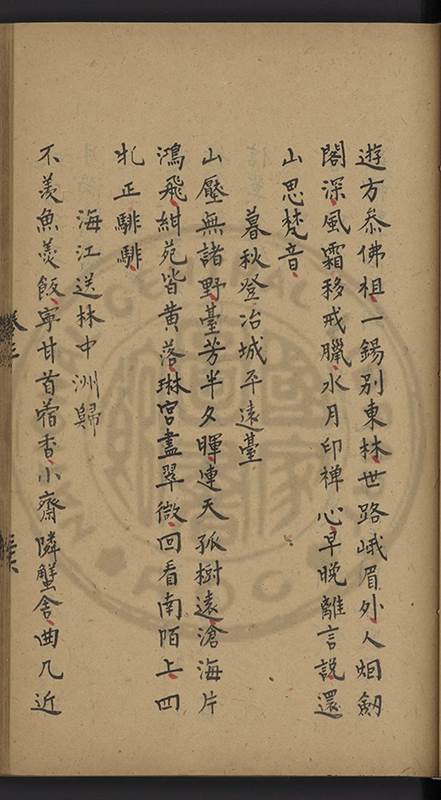 遊方叅佛祖一錫別東林世路峨眉外人烟劒
閣深風霜移戒臘水月印禅心早晚離言說還
山思梵音
暮秋登冶城平遠臺
山壓無諸野臺芳半夕暉連天孤樹遠滄海片
鴻飛紺苑皆黄落琳宮盡翠微回看南陌上四
牝正騑騑
海江送林中洲歸
不羨魚羹飯寧甘首蓿香小齋隣蟹舍曲几近